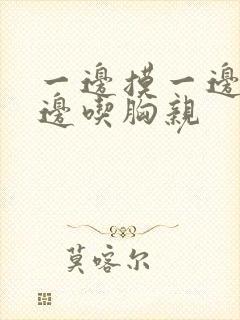 一邊摸一邊
邊喫胸親
莫喀尔